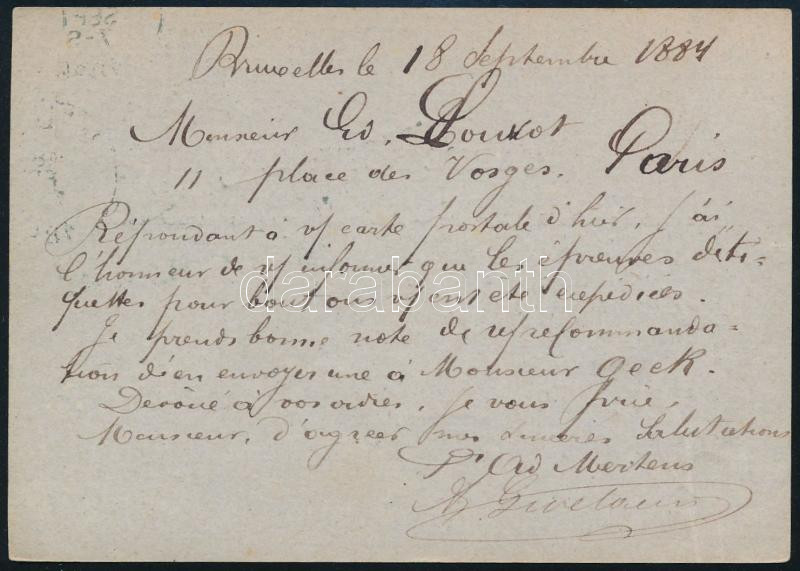 Bruxelles le 18 Septembre 1884
Monsieur Ed. Louxot
11 place des Vosges. Paris
Répondant à v/ carte postale d'hier, j'ai
l'honneur de v/ informer que les épreuves d'éti-
quettes pour boutons v/ ont été expédiées.
Je prends bonne note de v/ recommanda-
tion d'en envoyer une à Monsieur Geck.
Dévoué à vos ordres, je vous prie,
Monsieur, d'agréer mes sincères salutations
Pr Ad Mertens
darabanth